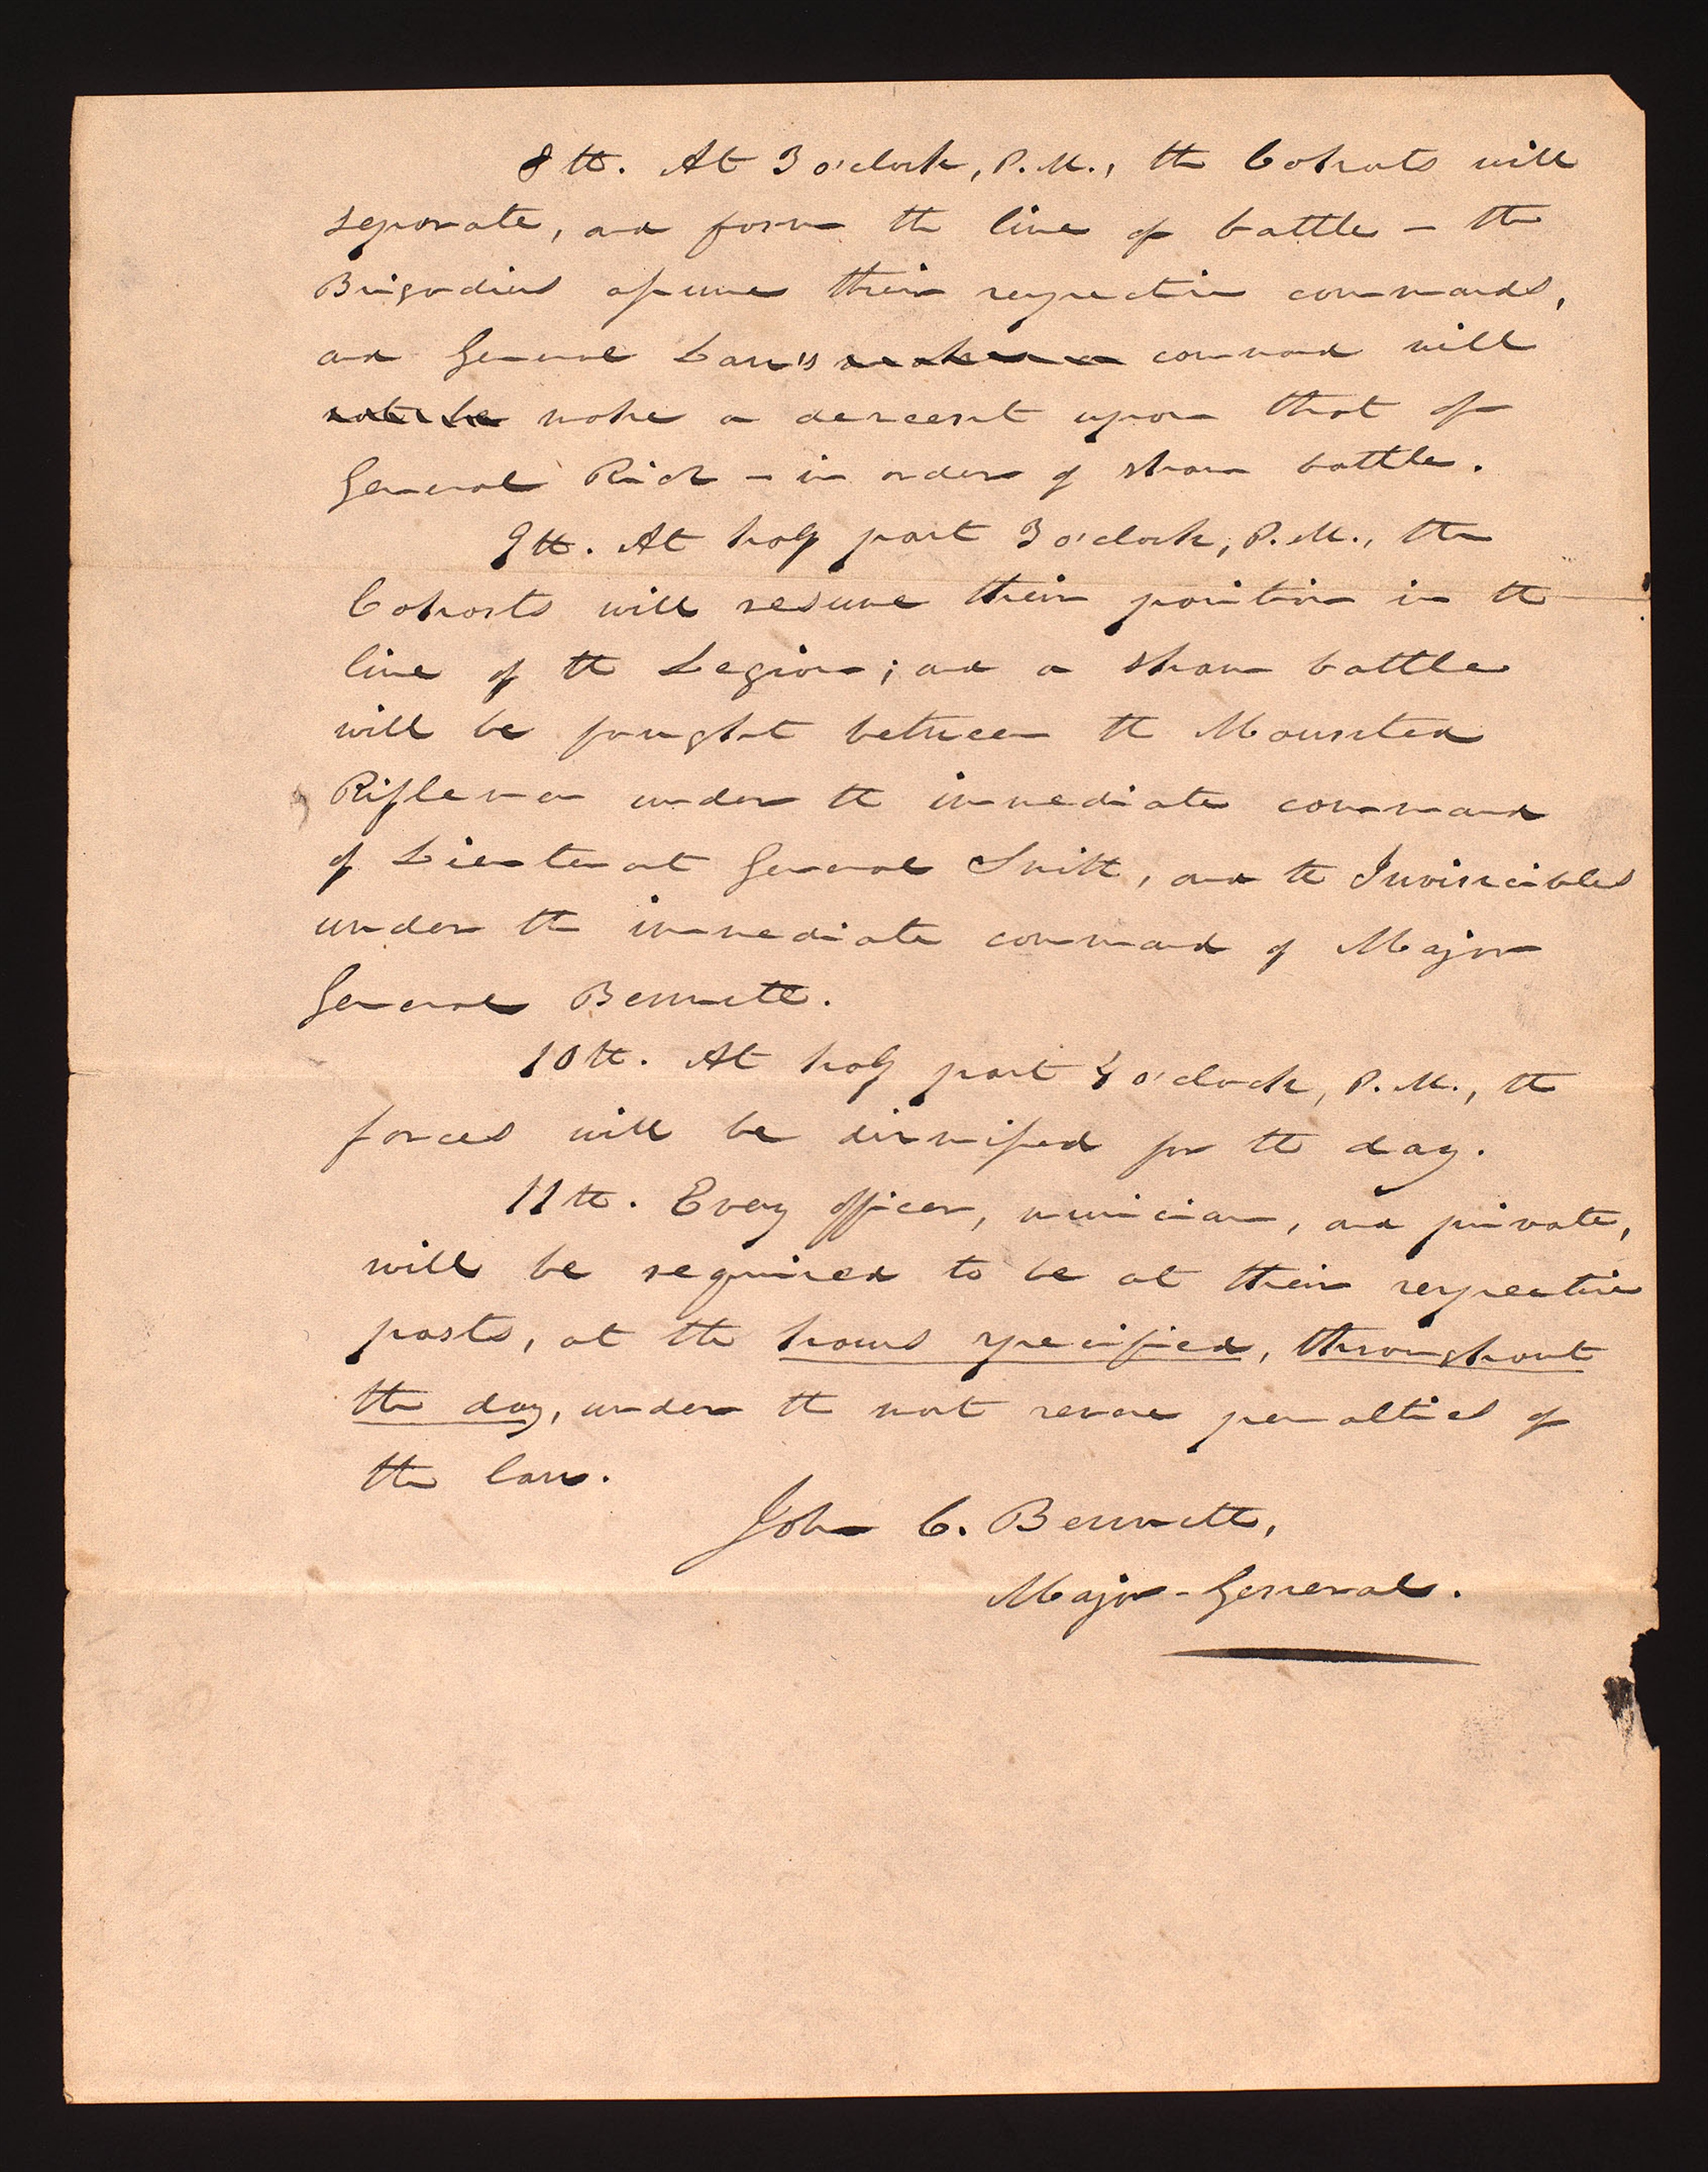 8th. At 3 o'clock, P.M., the Cohorts will
separate, and form the line of battle – the
Brigadiers assume their respective commands,
and General Law's make a command will
make a descent upon that of
General Rich – in order of sham battle.
9th. At half past 3 o'clock, P.M., the
Cohorts will resume their position in the
line of the Legion; and a sham battle
will be fought between the Mounted
Riflemen under the immediate command
of Lieutenant General Smith, and the Invincibles
under the immediate command of Major
General Bennett.
10th. At half past 4 o'clock, P.M., the
forces will be dismissed for the day.
11th. Every officer, musician, and private,
will be required to be at their respective
posts, at the hours specified, throughout
the day, under the most severe penalties of
the law.
John C. Bennett,
Major-General.